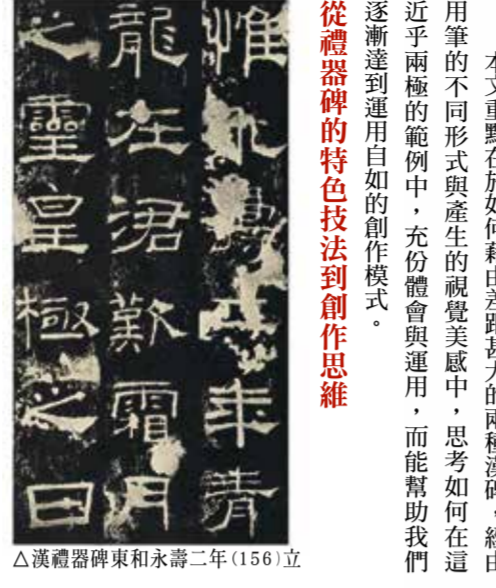 本文重點在於如何藉由差距甚大的兩種漢碑，經由
用筆的不同形式與產生的視覺美感中，思考如何在這
近乎兩極的範例中，充份體會與運用，而能幫助我們
逐漸達到運用自如的創作模式。
從禮器碑的特色技法到創作思維
惟永壽二年青
龍在涒歎霜月
之靈皇極之日
△漢禮器碑東和永壽二年(156)立